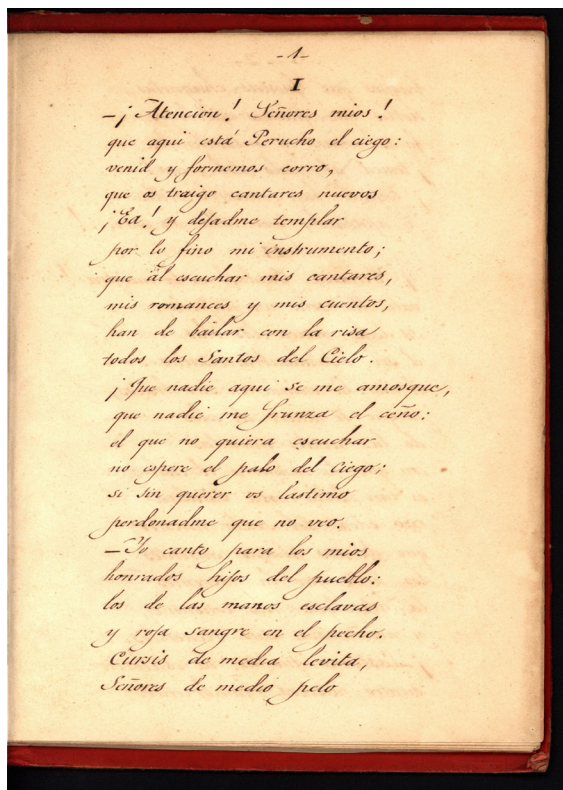 -1-
I
-¡Atencion! Señores mios!
que aqui está Perucho el ciego:
venid y formemos corro,
que os traigo cantares nuevos
¡Ea! y dejadme templar
por lo fino mi instrumento;
que al escuchar mis cantares,
mis romances y mis cuentos,
han de bailar con la risa
todos los Santos del Cielo.
¡Que nadie aqui se me amosque,
que nadie me frunza el ceño:
el que no quiera escuchar
no espere el palo del ciego;
si sin querer os lastimo
perdonadme que no veo.
-Yo canto para los mios
honrados hijos del pueblo:
los de las manos esclavas
y roja sangre en el pecho.
Cursis de media levita,
Señores de medio pelo